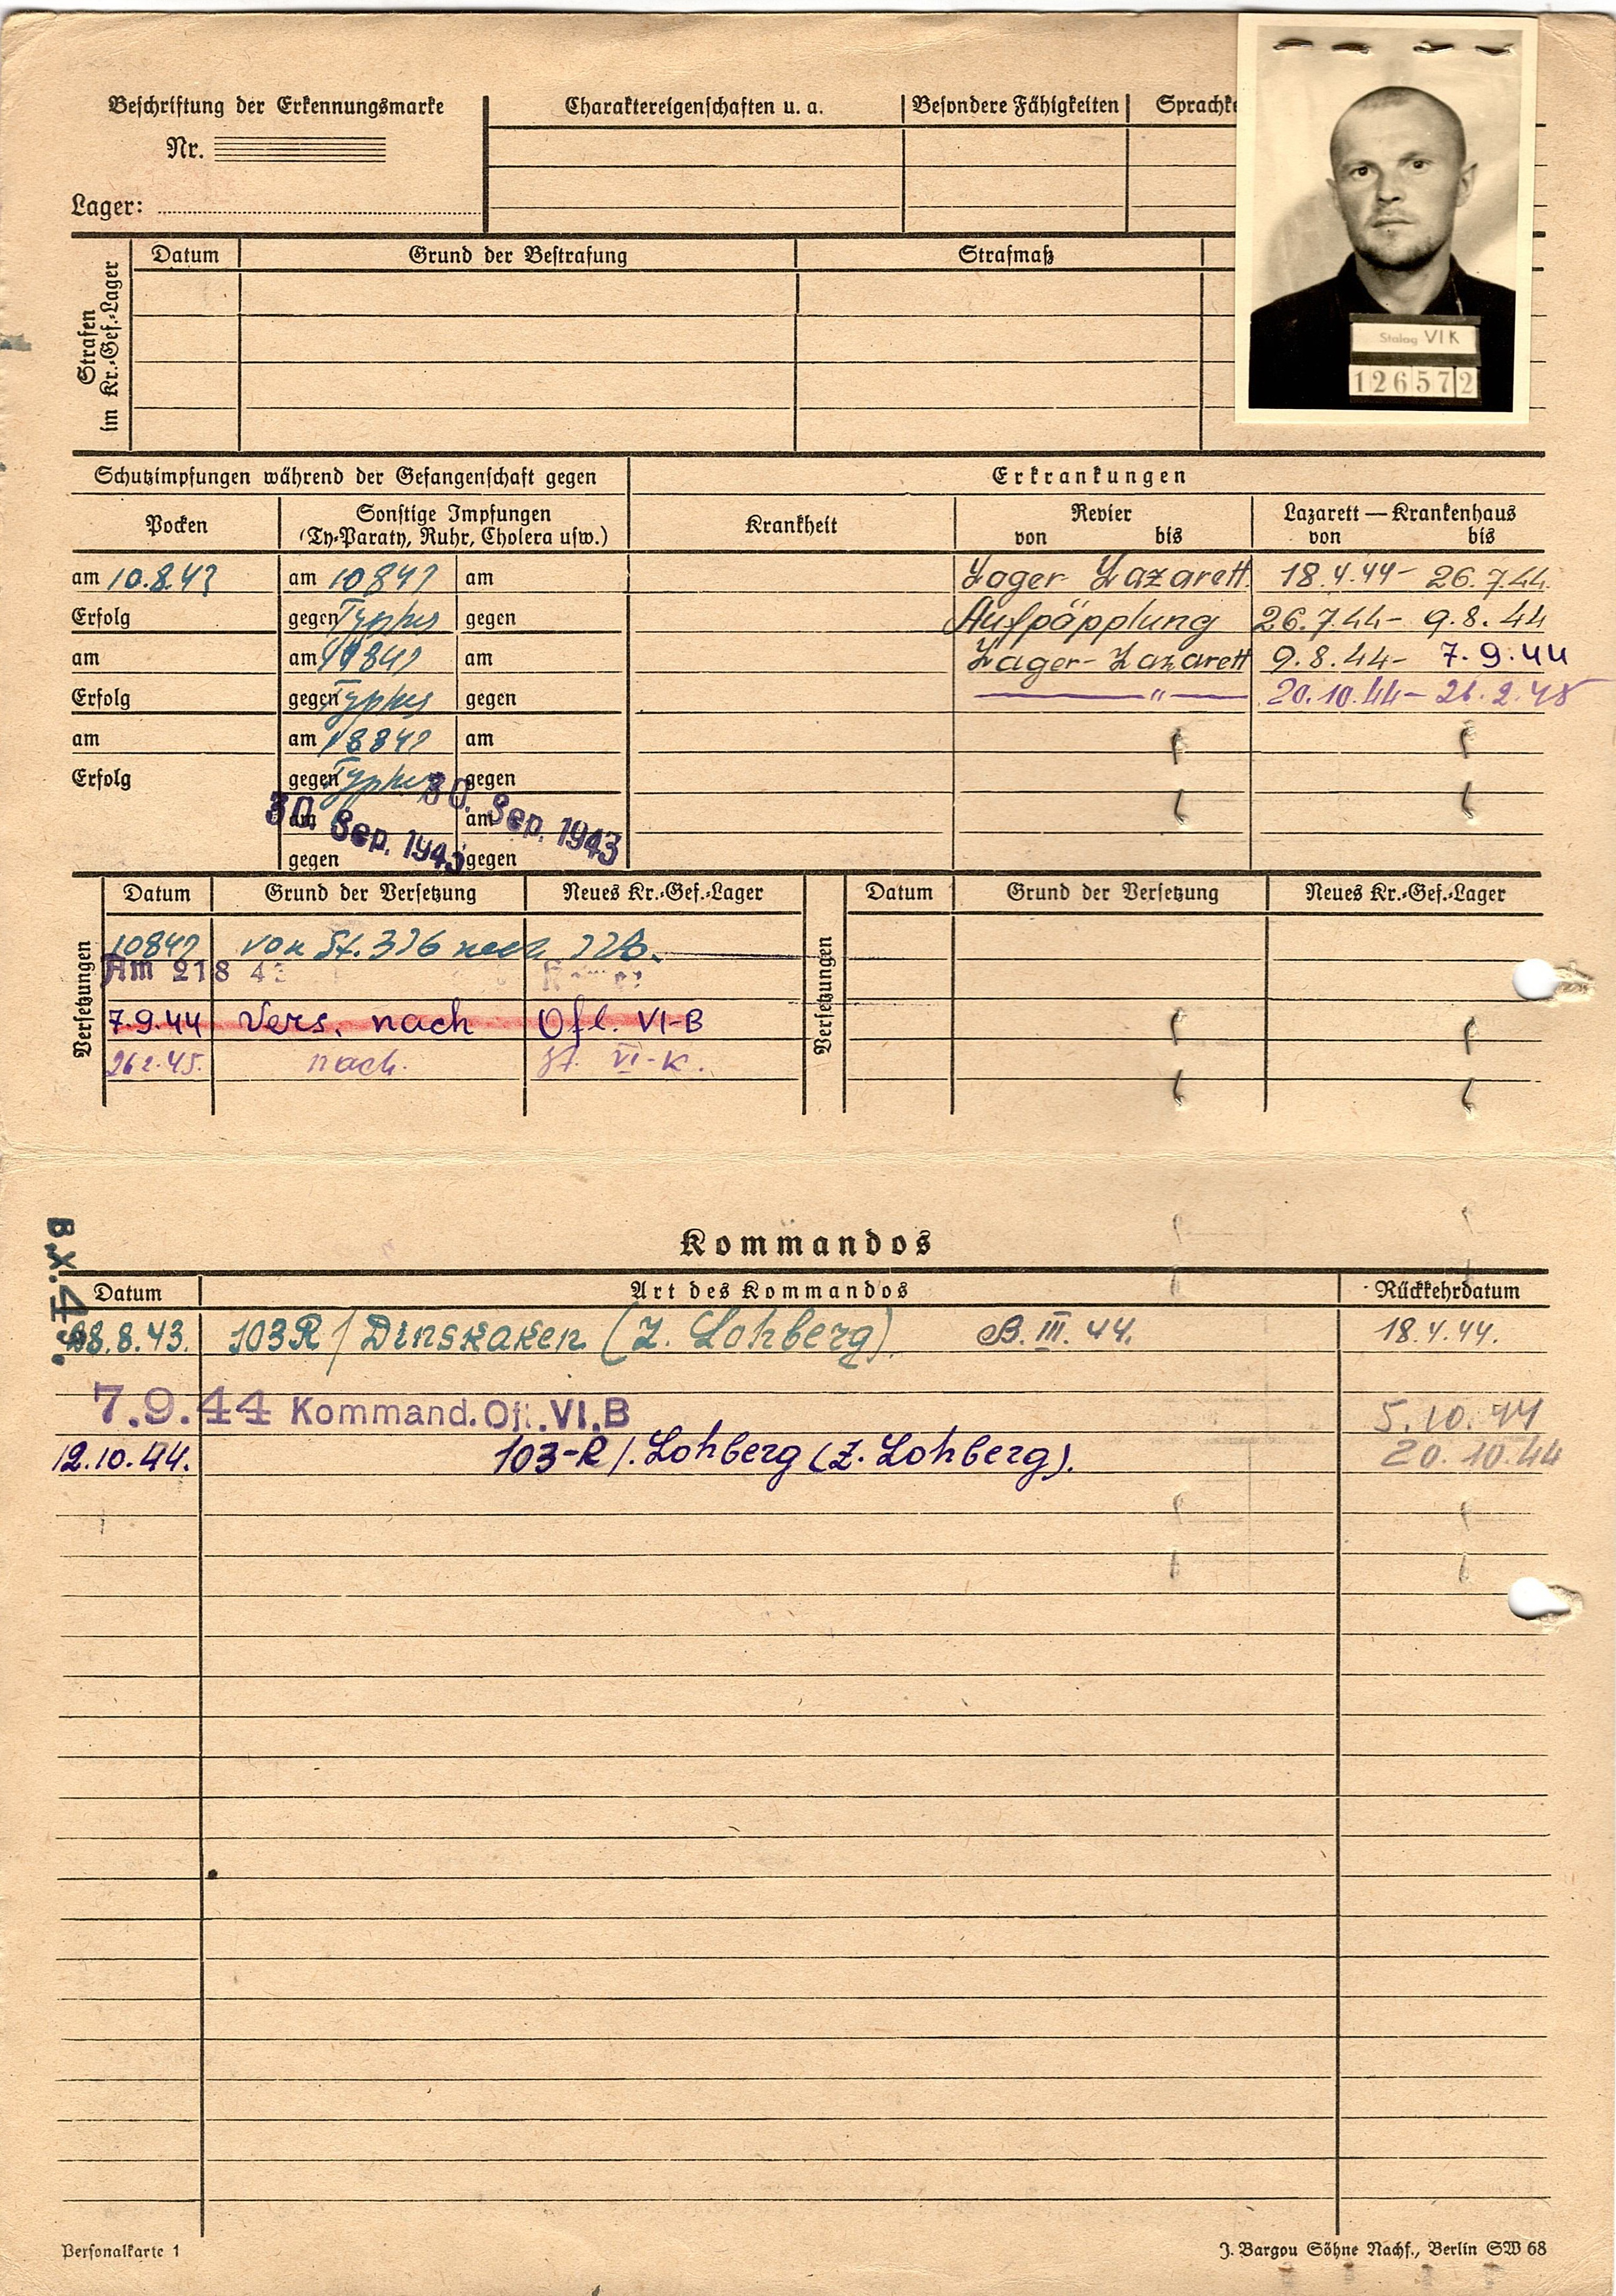 Beschriftung der Erkennungsmarke
Nr.
Lager:
Charaktereigenschaften u. a.
Besondere Fähigkeiten
Sprachke
Stalag VI K
126572
Strafen
im Kr.-Gef.-Lager
Datum
Grund der Bestrafung
Strafmaß
Schutzimpfungen während der Gefangenschaft gegen
Erkrankungen
Pocken
Sonstige Impfungen
(Ty-Paraty, Ruhr, Cholera usw.)
Krankheit
Revier
von bis
Lazarett — Krankenhaus
von bis
am 10.8.43 am 10843 am
Lager Lazarett. 18.4.44- 26.7.44.
Erfolg gegen Typhus gegen
Aufpäpplung 26.7.44- 9.8.44
am am 843 am
Lager-Lazarett 9.8.44- 7.9.44
Erfolg gegen Typhus gegen
" 20.10.44- 26.2.45
am am 18843 am
Erfolg gegen Typhus gegen
am am
30. Sep. 1943 30. Sep. 1943
gegen gegen
Versetzungen
Datum Grund der Versetzung Neues Kr.-Gef.-Lager
10843 von St. 326 nach
Am 21 8 43
7.9.44 Vers. nach Ofl. VI-B
26 2.45. nach. St. VI-K.
Versetzungen
Datum Grund der Versetzung Neues Kr.-Gef.-Lager
B.X.4
Kommandos
Datum Art des Kommandos Rückkehrdatum
8.8.43. 103R / Dinskaken (Z. Lohberg). B. III. 44. 18.4.44.
7.9.44 Kommand. Ofl. VI. B 5.10.44
12.10.44. 103-R/. Lohberg (Z. Lohberg). 20.10.44
Personalkarte 1
J. Bargou Söhne Nachf., Berlin SW 68